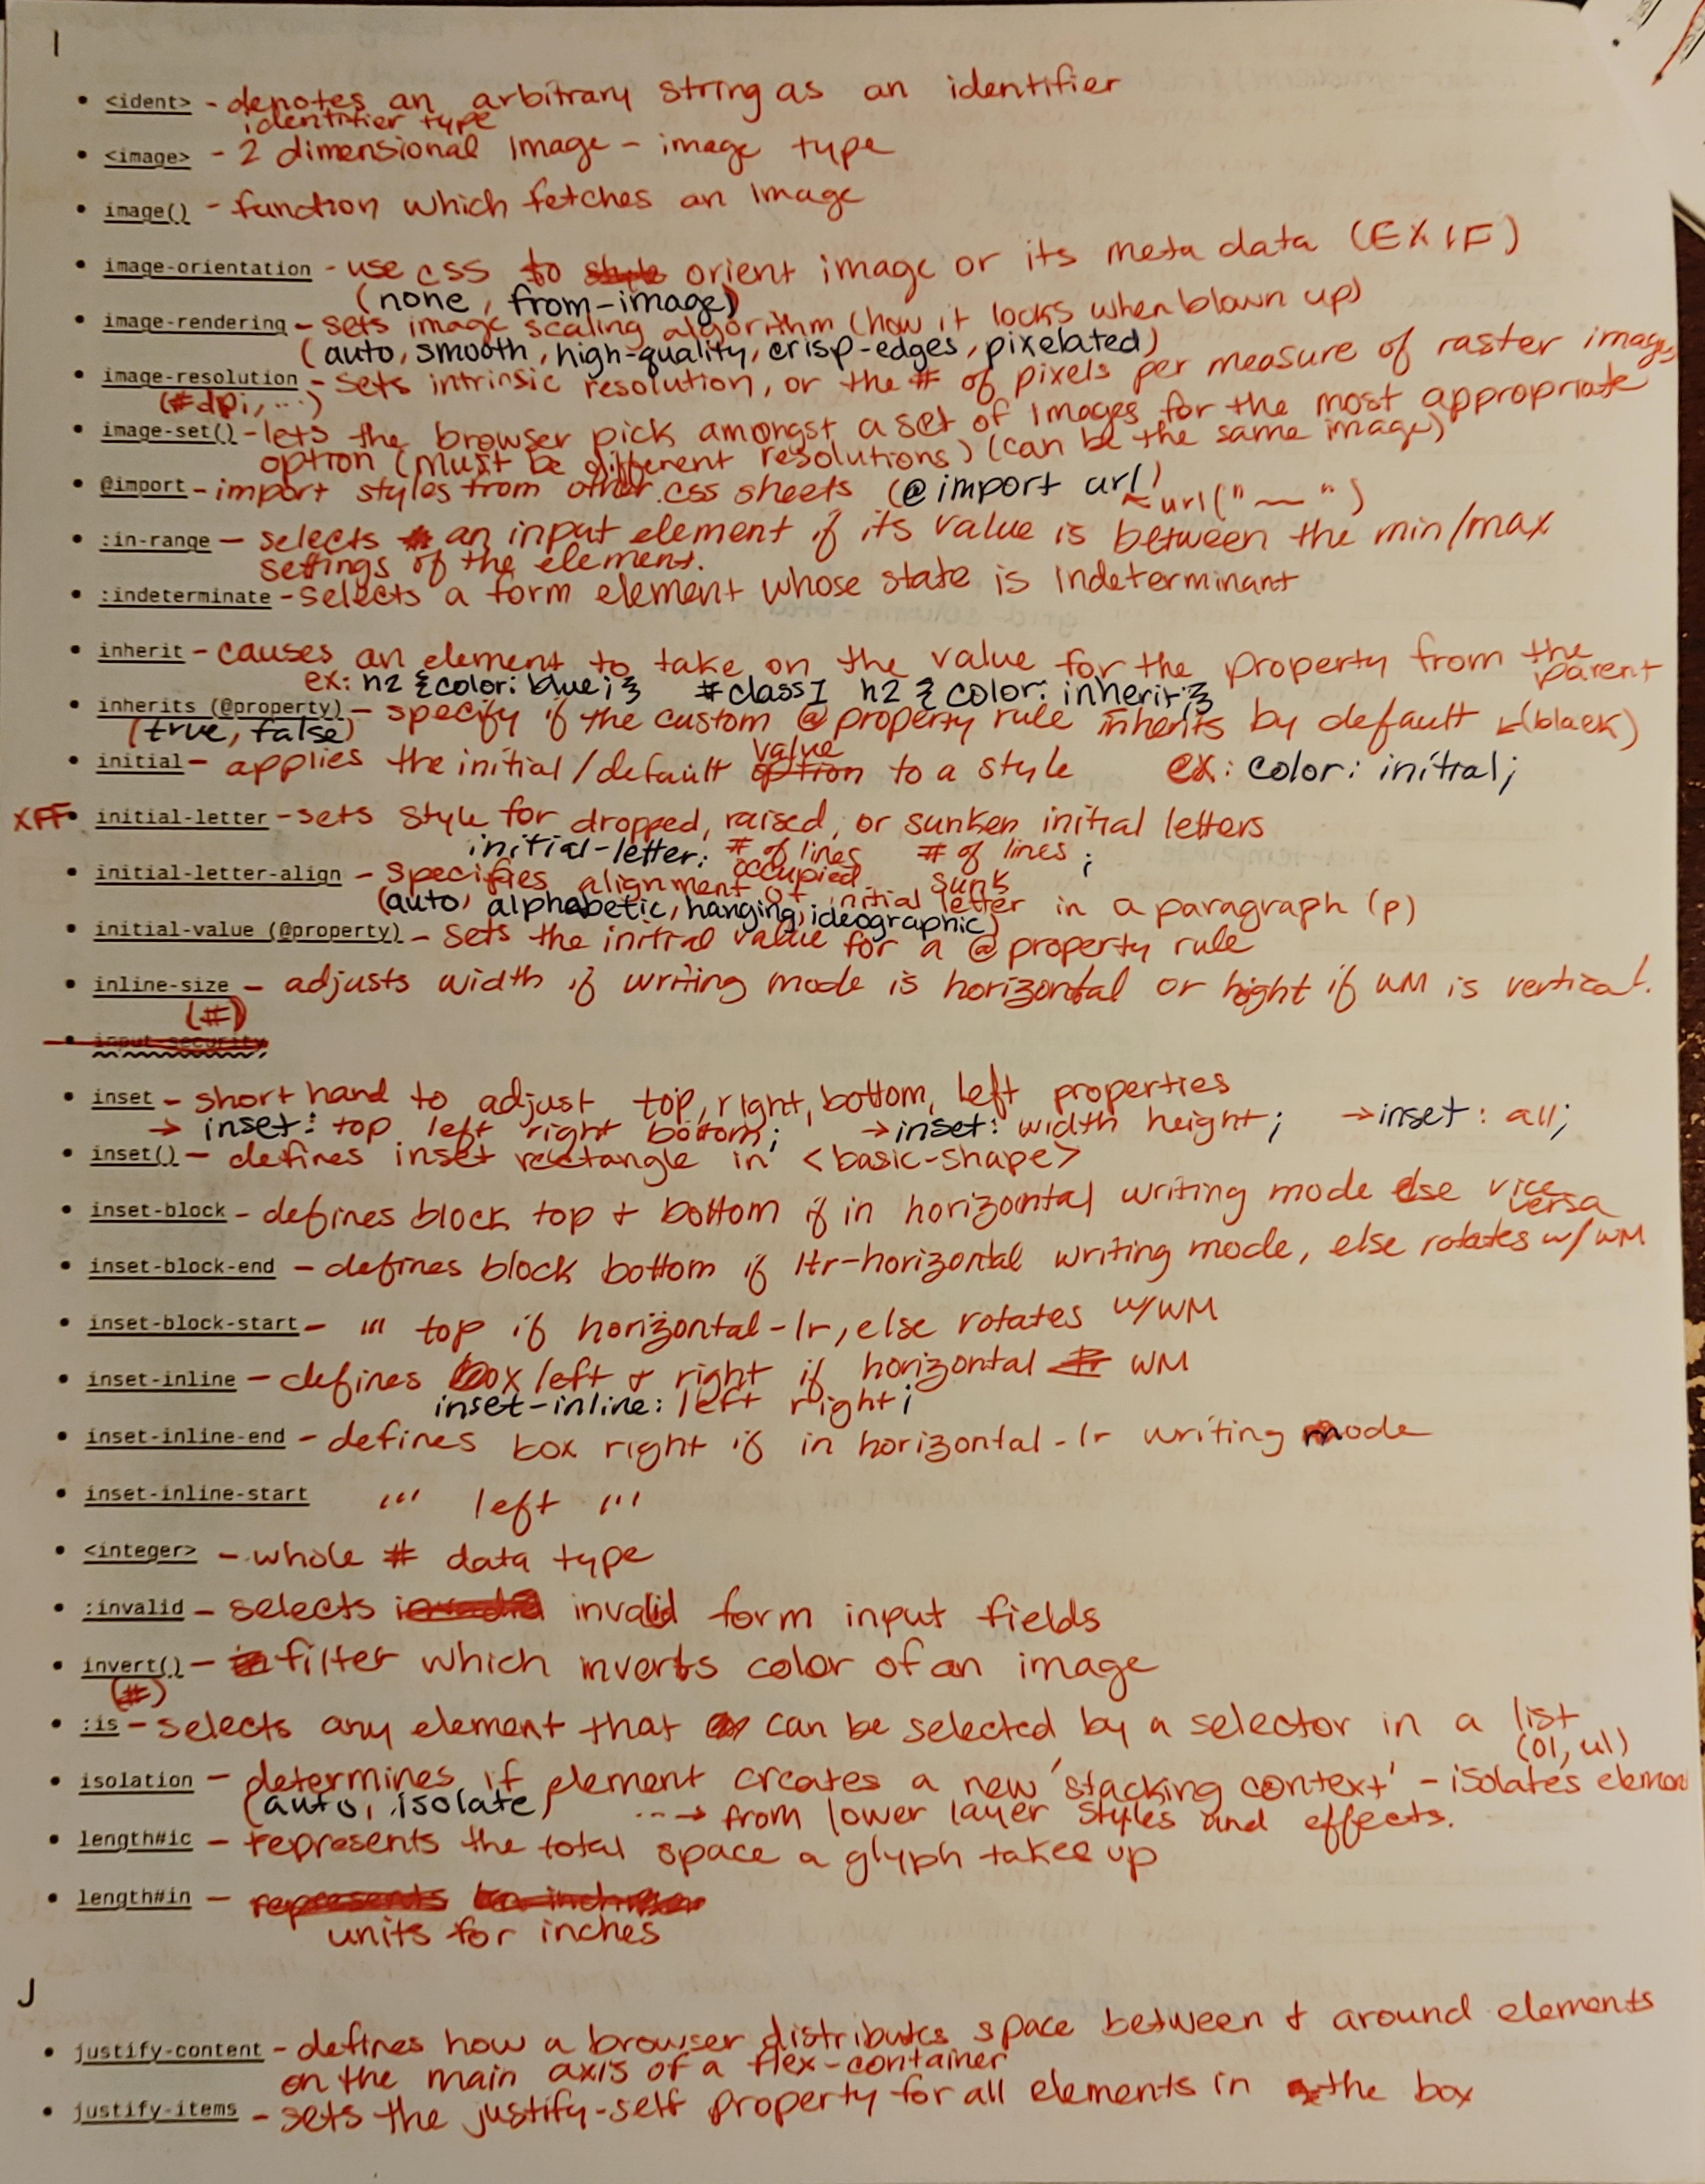 I
• <ident> - denotes an arbitrary string as an identifier
identifier type
• <image> - 2 dimensional image - image type
• image() - function which fetches an image
• image-orientation - use css to orient image or its meta data (EXIF)
(none, from-image)
• image-rendering - sets image scaling algorithm (how it looks when blown up)
(auto, smooth, high-quality, crisp-edges, pixelated)
• image-resolution - sets intrinsic resolution, or the # of pixels per measure of raster images
(#dpi, ...)
• image-set() - lets the browser pick amongst a set of images for the most appropriate
option (must be different resolutions) (can be the same image)
• @import - import styles from other .css sheets (@import url)
~url("—")
• :in-range - selects an input element if its value is between the min/max
settings of the element.
• :indeterminate - selects a form element whose state is indeterminant
• inherit - causes an element to take on the value for the property from the
parent
ex: h2 {color: blue;} #class1 h2 {color: inherit;}
• inherits (@property) - specify if the custom @property rule inherits by default ↳(black)
(true, false)
value
• initial - applies the initial/default option to a style ex: color: initial;
XFF • initial-letter - sets style for dropped, raised, or sunken initial letters
initial-letter: # of lines # of lines ;
occupied sunk
• initial-letter-align - specifies alignment of initial letter in a paragraph (p)
(auto, alphabetic, hanging, ideographic)
• initial-value (@property) - sets the initial value for a @property rule
• inline-size - adjusts width if writing mode is horizontal or hight if WM is vertical.
(#)
• input-security
• inset - short hand to adjust top, right, bottom, left properties
→ inset: top left right bottom; → inset: width height; → inset: all;
• inset() - defines inset rectangle in <basic-shape>
• inset-block - defines block top + bottom if in horizontal writing mode else vice
versa
• inset-block-end - defines block bottom if ltr-horizontal writing mode, else rotates w/ WM
• inset-block-start - "' top if horizontal-lr, else rotates w/WM
• inset-inline - defines box left + right if horizontal WM
inset-inline: left right;
• inset-inline-end - defines box right if in horizontal-lr writing mode
• inset-inline-start "' left "'
• <integer> - whole # data type
• :invalid - selects invalid form input fields
• invert() - filter which inverts color of an image
(#)
• :is - selects any element that can be selected by a selector in a list
(ol, ul)
• isolation - determines if element creates a new 'stacking context' - isolates element
(auto, isolate) ---→ from lower layer styles and effects.
• length#ic - represents the total space a glyph takes up
• length#in -
units for inches
J
• justify-content - defines how a browser distributes space between + around elements
on the main axis of a flex-container
• justify-items - sets the justify-self property for all elements in the box